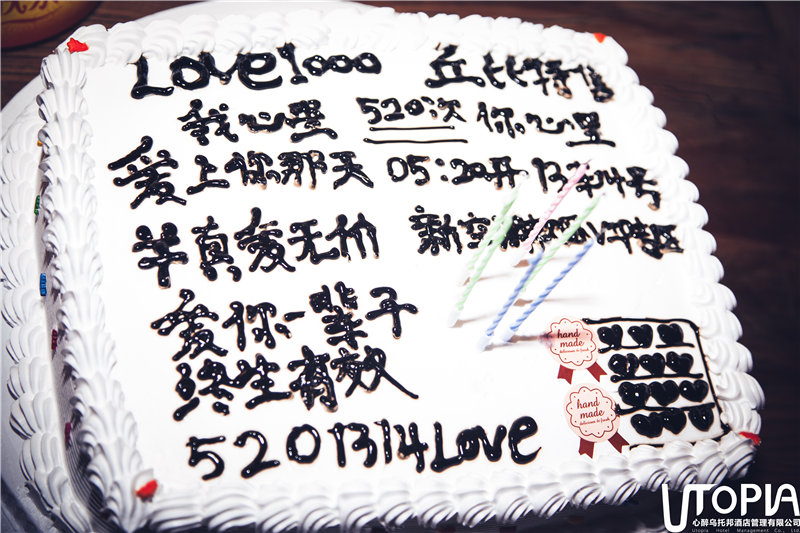 Love1000 丘比特售
我心里 520次 你心里
爱上你那天 05:20开 13车14号
真爱无价 新空
爱你一辈子
终生有效
5201314Love
hand made
hand made
UTOPIA
心醉乌托邦酒店管理有限公司
Utopia Hotel Management Co., Ltd.